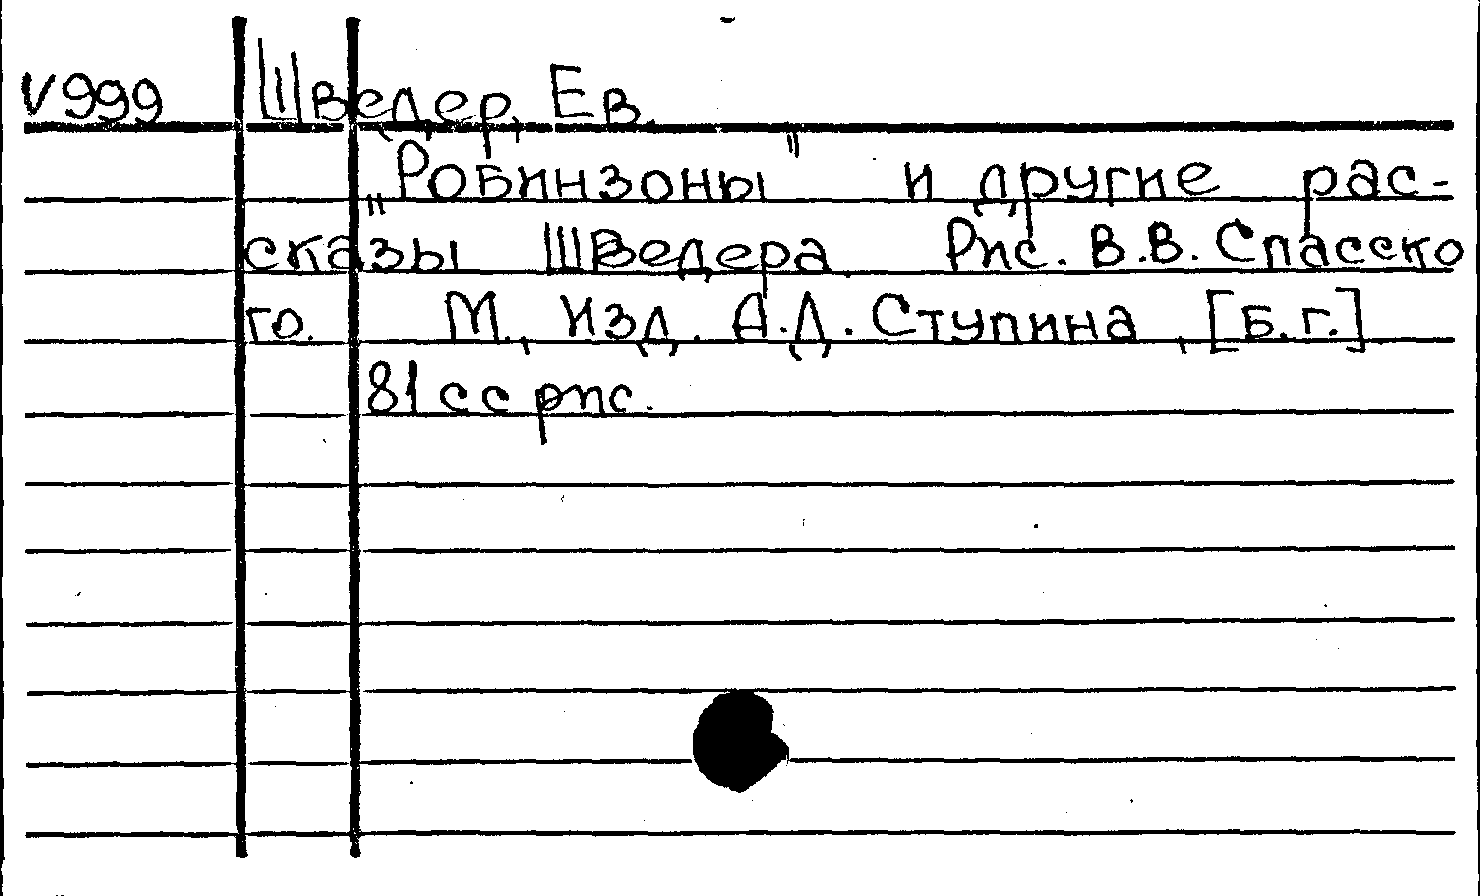 V999 Шведер, Ев.
„Робинзоны" и другие рас-
сказы Шведера. Рис. В.В. Спасско
го. М., Изд. А.Д. Ступина, [Б.г.]
81 с с рис.